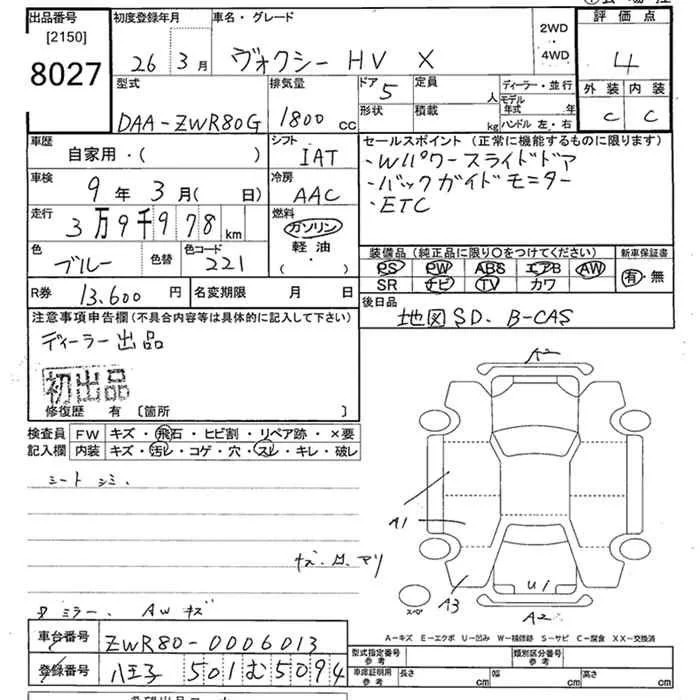 出品番号
[2150]
8027
初度登録年月
26 3月
車名・グレード
ヴォクシー HV X
2WD
・
4WD
評価点
4
外装 内装
C C
型式
DAA-ZWR80G
排気量
1800 cc
ドア 5
形状
定員 人
積載 kg
ディーラー・並行
モデル年式 年
ハンドル 左・右
車歴
自家用・( )
シフト
IAT
車検
9年3月( 日)
冷房
AAC
走行
3万9千978 km
燃料
ガソリン
軽油
( ・ )
色
ブルー
色替
色コード
221
R券 13.600円
名変期限 月 日
セールスポイント(正常に機能するものに限ります)
・Wパワースライドドア
・バックガイドモニター
・ETC
装備品(純正品に限り○をつけてください)
PS PW ABS エアB AW
SR ナビ TV カワ
新車保証書
有・無
後日品
地図SD. B-CAS
注意事項申告欄(不具合内容等は具体的に記入して下さい)
ディーラー出品
初出品
修復歴 有 [箇所 ]
検査員
記入欄
FW キズ・飛石・ヒビ割・リペア跡・×要
内装 キズ・汚レ・コゲ・穴・スレ・キレ・破レ
シートシミ.
ミラー. AWキズ
A2
A1
A3
U1
A2
スペア
A-キズ E-エクボ U-凹み W-補修跡 S-サビ C-腐食 XX-交換済
車台番号 ZWR80-0006013
登録番号 八王子 501む5094
型式指定番号
参考
類別区分番号
参考
車庫証明用
参考
長さ cm 幅 cm 高さ cm